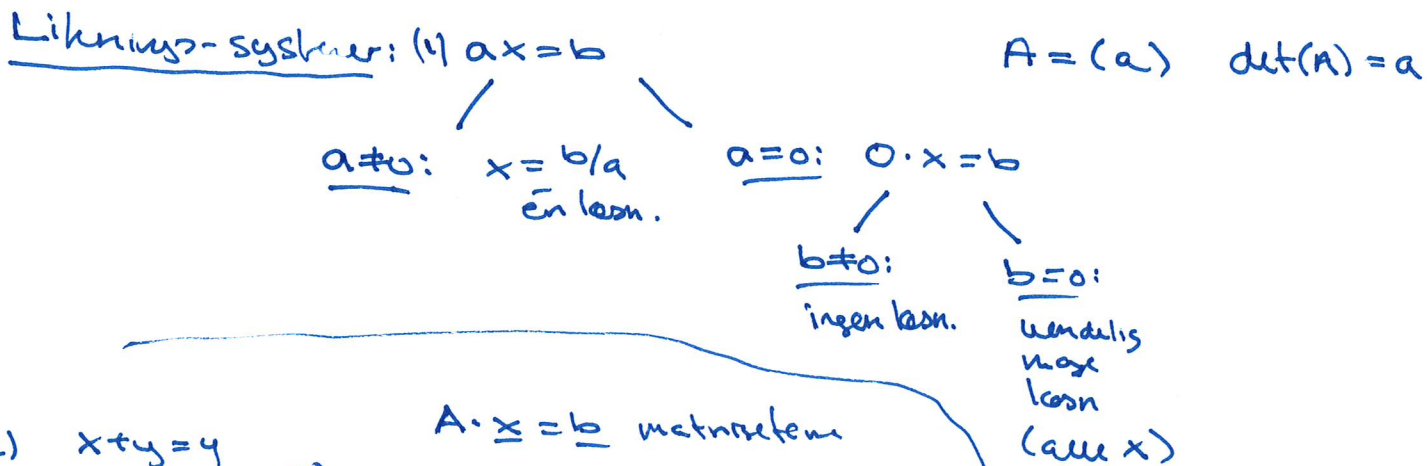 Liknings-systemer: (1) ax = b
A = (a) det(A) = a
a≠0: x = b/a
én løsn.
a=0: 0·x = b
b≠0:
ingen løsn.
b=0:
uendelig
mange
løsn
(alle x)
A·x = b matriseform
.) x+y=4